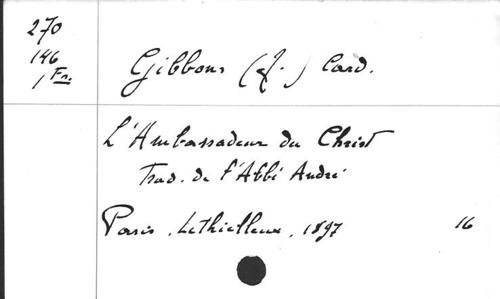 270
146
1 Fr.
Gibbons (J.) Card.
L'Ambassadeur du Christ
Trad. de l'Abbé André
Paris. Lethielleux, 1897 16